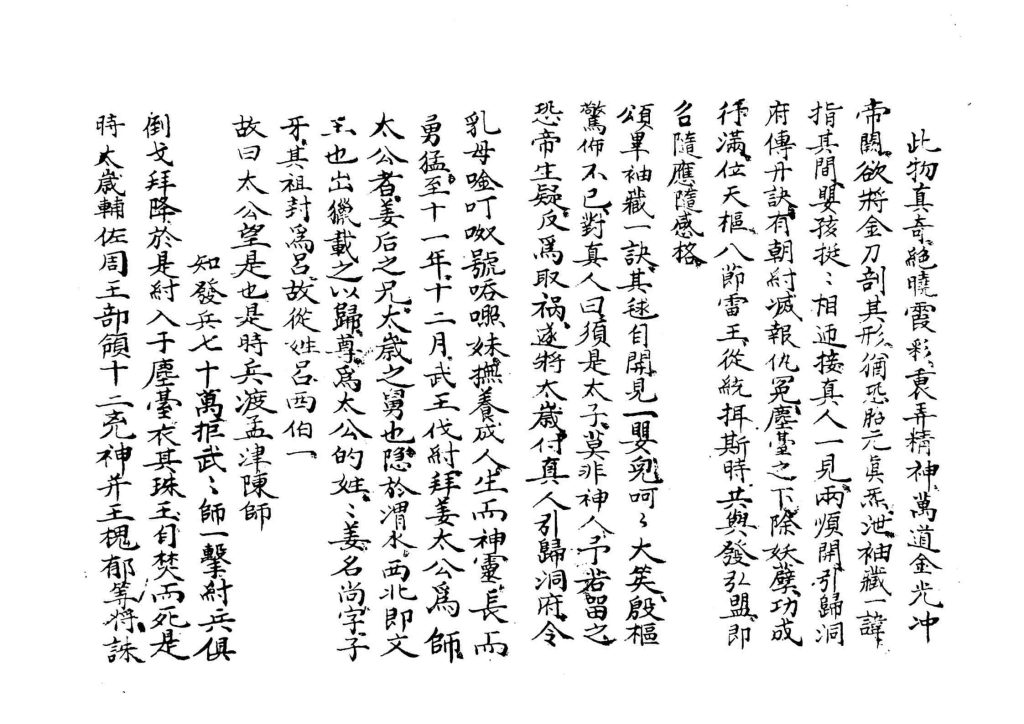 此物真奇絕曉霞彩裏弄精神萬道金光冲
帝闕欲將金刀剖其形猶恐胎元眞炁泄袖藏一諱
指其間嬰孩挺〻相迎接真人一見兩頰開引歸洞
府傳丹訣有朝紂滅報仇冤塵臺之下除妖孽功成
行滿位天樞八節雷王從統押斯時共與發弘盟即
召隨應隨感格
頌畢袖藏一訣其毬自開見一嬰兒呵〻大笑殷樞
驚怖不已對真人曰須是太子莫非神人予若留之
恐帝生疑反爲取禍遂將太歲付真人引歸洞府令
乳母唫叮呶號呑嘿妹撫養成人生而神靈長而
勇猛至十一年十二月武王伐紂拜姜太公爲師
太公者姜后之兄太歲之舅也隐於渭水西北即文
王也出獵載之以歸尊爲太公的姓〻姜名尚字子
牙其祖封爲呂故從姓呂西伯一
故曰太公望是也是時兵渡孟津陳師
知發兵七十萬拒武〻師一擊紂兵俱
倒戈拜降於是紂入于塵臺衣其珠玉自焚而死是
時太歲輔佐周王部領十二充神并王槐郁等將誅